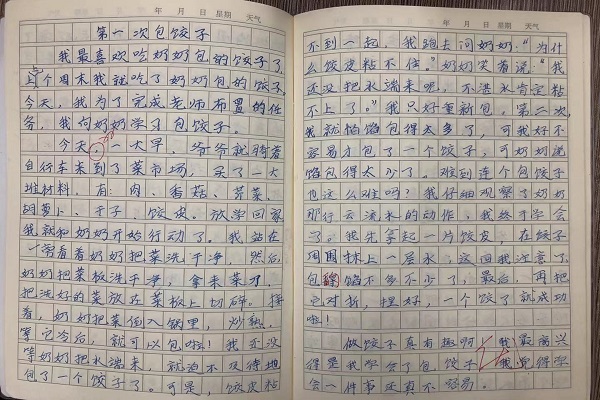 年 月 日 星期 天气
第一次包饺子
我最喜欢吃奶奶包的饺子了,
上个周末我就吃了奶奶包的饺子,
今天,我为了完成老师布置的任
务,我向奶奶学习包饺子。
今天,一大早,爷爷就骑着
自行车来到了菜市场,买了一大
堆材料,有:肉、香菇、芹菜、
胡萝卜、干子、饺皮。放学回家
我就和奶奶开始行动了。我站在
一旁看着奶奶把菜洗干净,然后
奶奶把菜板洗干净,拿来菜刀,
把洗好的菜放在菜板上切碎。接
着,奶奶把菜倒入锅里,炒熟,
等它冷后,就可以包啦!我还没
等奶奶把水端来,就迫不及待地
包了一个饺子了。可是,饺皮粘
年 月 日 星期 天气
不到一起,我跑去问奶奶:“为什
么饺皮粘不住。”奶奶笑着说:“我
还没把水端来呢,不沾水肯定粘
不上了。”我只好重新包。第二次,
我就馅馅包得太多了,可我好不
容易才包了一个饺子,可奶奶说
馅包得太少了。难到连个包饺子
也这么难吗?我仔细观察了奶奶
那行云流水的动作,我终于学会
了。我先拿起一片饺皮,在饺子
周围抹上一层水,这回我注意了,
包馅不多不少了,最后,再把
它对折,捏好,一个饺子就成功
啦!
做饺子真有趣啊!我最高兴
得是我学会了包饺子,我觉得学
会一件事还真不容易。